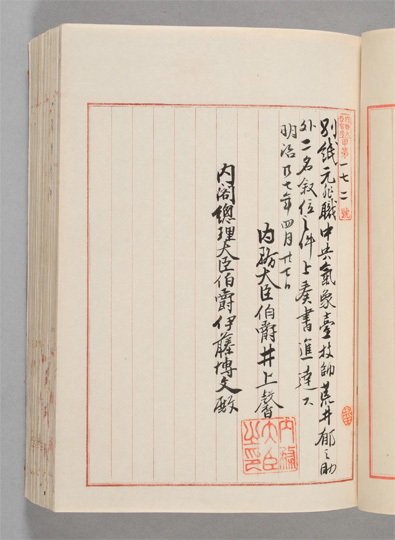 第一七二號
別紙元非職中央氣象臺技師荒井郁之助
外二名敍位之件上奏書進達ス
明治廿七年四月廿七日
内務大臣伯爵井上馨
内務大臣之印
内閣總理大臣伯爵伊藤博文殿